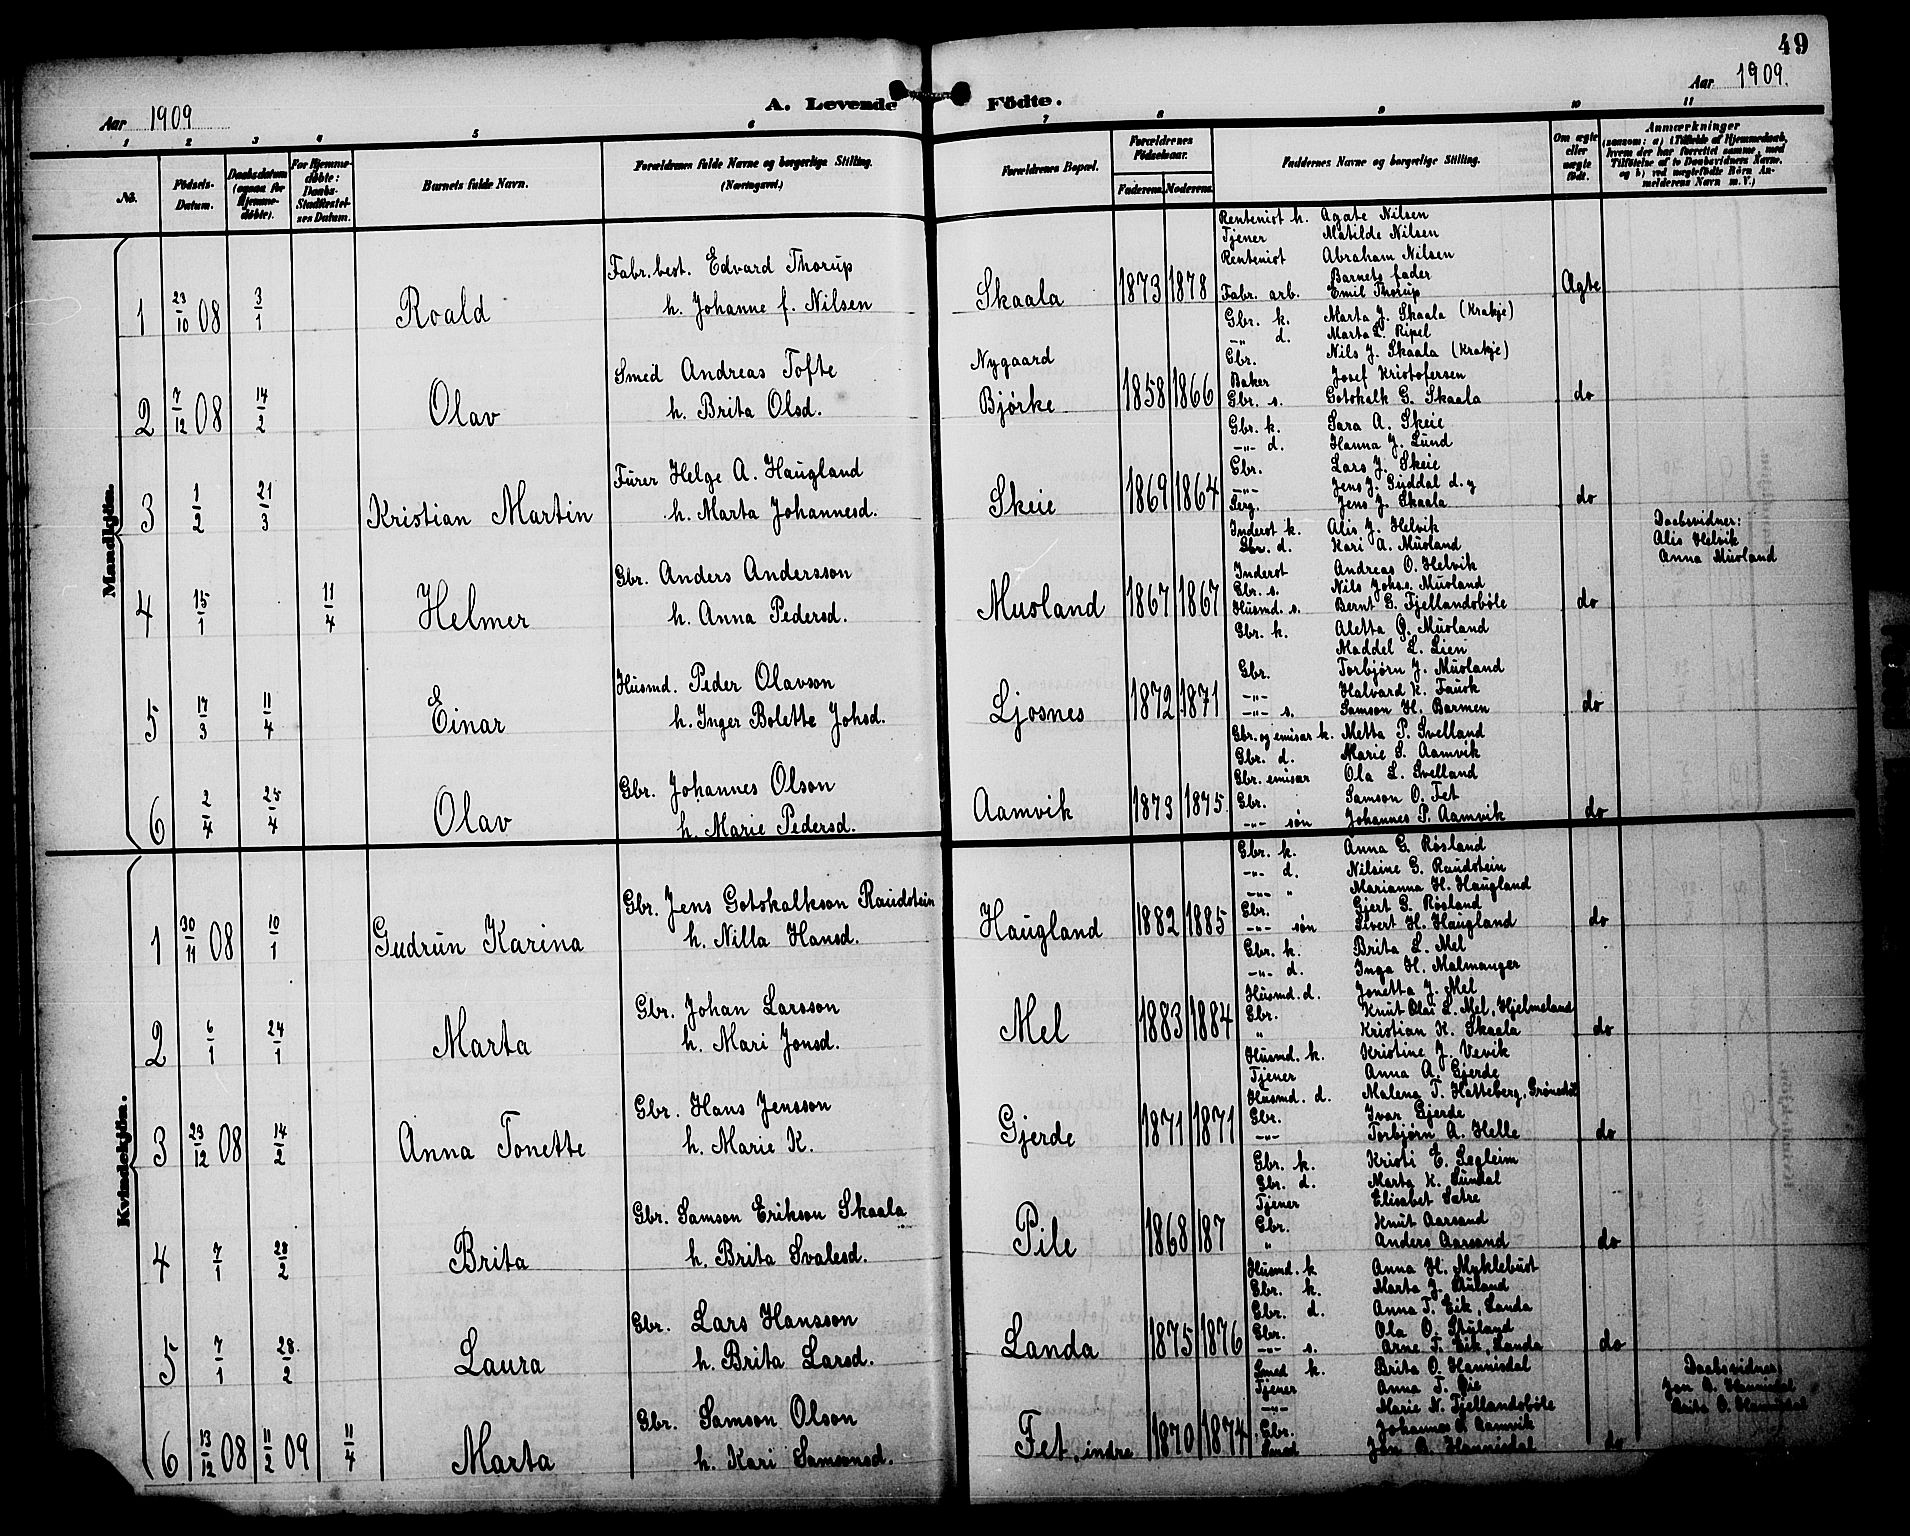 49
Aar 1909
A. Levende Födte.
Aar 1909.
1 2 3 4 5 6 7 8 9 10 11
No.
Födsels-Datum.
Daabsdatum (ogsaa for Hjemmedöbte).
For Hjemmedöbte: Daabs-Stadfæstelses Datum.
Barnets fulde Navn.
Forældrenes fulde Navne og borgerlige Stilling. (Næringsvei.)
Forældrenes Bopæl.
Forældrenes Födselsaar.
Faderens. Moderens.
Faddernes Navne og borgerlige Stilling.
Om ægte eller uægte født.
Anmærkninger
(saasom: a) i Tilfælde af Hjemmedaab, hvem der har forrettet samme, med Tilföielse af to Daabsvidners Navne, og b) ved uægtefödte Börn Anmelderens Navn m. V.)
Mandkjön.
1 23/10 08 3/1 Roald
Fabr. best. Edvard Thorup
h. Johanne f. Nilsen
Skaala 1873 1878
Rentenist h. Agate Nilsen
Tjener Matilde Nilsen
Rentenist Abraham Nilsen
Barnets fader
Fabr. arb. Emil Thorup
Ægte
2 7/12 08 14/2 Olav
Smed Andreas Tofte
h. Brita Olsd.
Nygaard
Bjørke 1858 1866
Gbr. k. Marta J. Skaala (Krakje)
-"- d. Marta L. Ripel
Gbr. Nils J. Skaala (Krakje)
Baker Josef Kristofersen
Gbr. s. Gotskalk G. Skaala
do
3 1/2 21/3 Kristian Martin
Furer Helge A. Haugland
h. Marta Johannesd.
Skeie 1869 1864
Gbr. k. Sara A. Skeie
-"- d. Hanna J. Lund
Gbr. Lars J. Skeie
-"- Jens J. Guddal d.y
Serg. Jens J. Skaala
do
4 15/1 11/4 Helmer
Gbr. Anders Andersson
h. Anna Pedersd.
Musland 1867 1867
Inderst k. Alis J. Helvik
Gbr. d. Kari A. Musland
Inderst Andreas O. Helvik
Gbr. s. Nils Johs. Musland
Husmd. s. Bernt G. Fjellandsbøle
do
Daabsvidner:
Alis Helvik
Anna Musland
5 17/3 11/4 Einar
Husmd. Peder Olavson
h. Inger Bolette Johsd.
Ljosnes 1872 1871
Gbr. k. Aletta O. Musland
Maddel L. Lien
Gbr. Torbjørn J. Musland
-"- Halvard K. Fausk
-"- s. Samson H. Barmen
do
6 2/4 25/4 Olav
Gbr. Johannes Olson
h. Marie Pedersd.
Aamvik 1873 1875
Gbr. og emisar k. Metta P. Svelland
Gbr. d. Marie S. Aamvik
Gbr. emisar Ola L. Svelland
Gbr. Samson O. Fet
-"- søn Johannes P. Aamvik
do
Kvindekjön.
1 30/11 08 10/1 Gudrun Karina
Gbr. Jens Gotskalkson Raudstein
h. Nilla Hansd.
Haugland 1882 1885
Gbr. k. Anna G. Røsland
-"- d. Nilsine G. Raudstein
-"- " Marianna H. Haugland
Gbr. Gjert G. Røsland
-"- søn Sivert H. Haugland
do
2 6/1 24/1 Marta
Gbr. Johan Larsson
h. Mari Jonsd.
Mel 1883 1884
Gbr. k. Brita L. Mel
-"- d. Inga H. Malmanger
Husmd. d. Jonetta J. Mel
Gbr. Knut Olai L. Mel, Hjelmeland
" Kristian K. Skaala
do
3 23/12 08 14/2 Anna Tonette
Gbr. Hans Jensson
h. Marie K.
Gjerde 1871 1871
Husmd. k. Kristine J. Vevik
Tjener Anna A. Gjerde
Husmd. d. Malena T. Hatteberg,
Gbr. Ivar Gjerde
-"- Torbjørn A. Helle
do
4 7/1 28/2 Brita
Gbr. Samson Erikson Skaala
h. Brita Svalesd.
Pile 1868 187
Gbr. k. Kristi E. Sagleim
Gbr. d. Marta K. Sundal
Tjener Elisabet Satre
Gbr. Knut Aarsand
" Anders Aarsand
do
5 7/1 28/2 Laura
Gbr. Lars Hansson
h. Brita Larsd.
Landa 1875 1876
Husmd. k Anna H. Myklebust
Gbr. k. Marta J. Stuland
Gbr. d. Anna T. Eik, Landa
Gbr. Ola O. Stuland
-"- s. Arne T. Eik, Landa
do
6 13/12 08 11/2 09 11/4 Marta
Gbr. Samson Olson
h. Kari Samsonsd.
Fet, indre 1870 1874
Smed k. Brita O. Hannisdal
Tjener Anna T. Øie
-"- Marie N. Fjellandsbøle
Gbr. Johannes O. Aamvik
Smed Jon B. Hannisdal
do
Daabsvidner
Jon B. Hannisdal
Brita O. Hannisdal